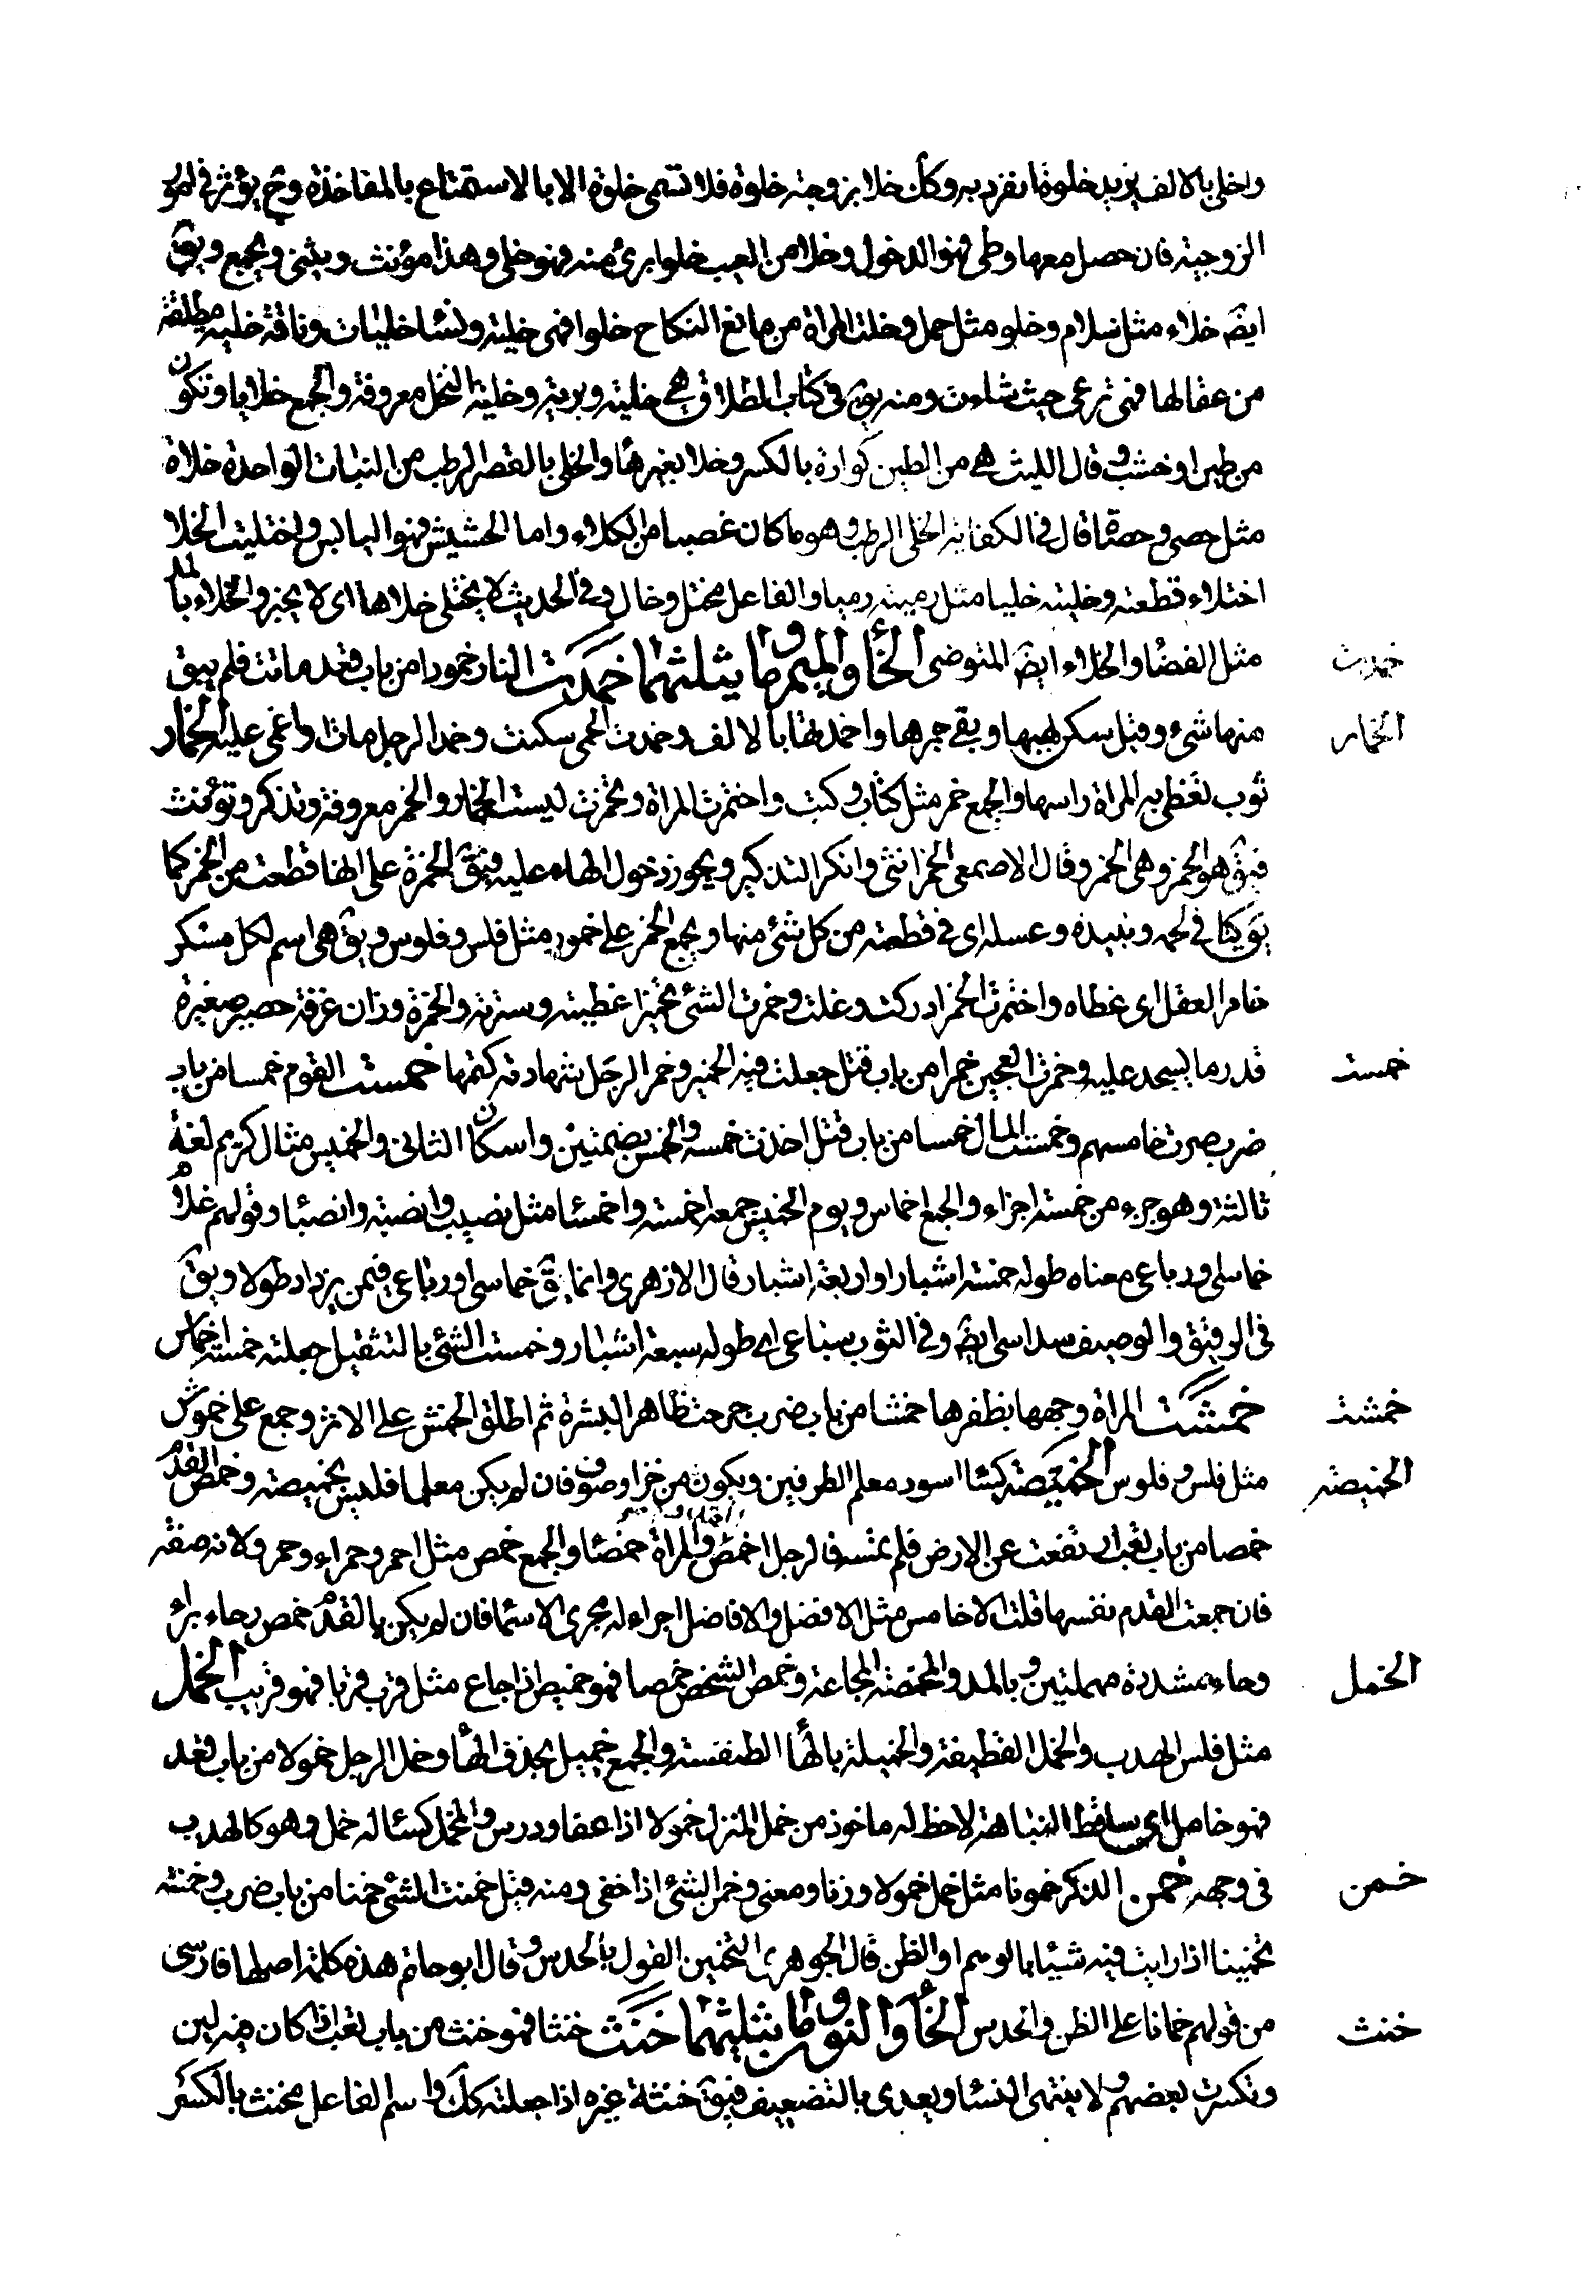 واخلى بالالف بزيد خلوة انفرد به وكك خلا بزوجته خلوة فلا تسمى خلوة الا بالاستمتاع بالمفاخذة وح يؤثر في امور
الزوجية فان حصل معها وطى فهو الدخول وخلا من العيب خلوا برئ منه فهو خلى وهذا مؤنث ويثنى ويجمع ويق
ايضَ خلاء مثل سلام وخلو مثل حمل وخلت المراة من مانع النكاح خلوا فهى خلية ونسا خليات وناقة خلية مطلقة
من عقالها فهى ترعى حيث شاءت ومنه يق في كتاب الطلاق هى خلية وبرية وخلية النحل معروفة والجمع خلايا وتكون
من طين او خشب وقال الليث هى من الطين كوارة بالكسر وخلا بغيرها والخلى بالقصر الرطب من النبات الواحدة خلاة
مثل حصى وحصاة قال في الكفاية الخلى الرطب وهو ما كان غصبا من الكلاء واما الحشيش فهو اليابس واختليت الخلا
اختلاء قطعته وخليته خليا مثل رميته رميا والفاعل مختل وخال وفي الحديث لا يختلى خلاها اى لا يجز والخلاء بالمد
مثل الفضا والخلاء ايضَ المتوضى الخا والميم وما يثلثهما خمدت النار خمودا من باب قعد ماتت فلم يبق
منها شىء وقيل سكن لهبها وبقى جمرها واخمدتها بالالف وخمدت الحمى سكنت وخمد الرجل مات او اغمى عليه الخمار
ثوب تغطى به المراة راسها والجمع خمر مثل كتاب وكتب واختمرت المراة وتخمرت لبست الخمار والخمر معروفة وتذكر وتؤنث
فيق هو الخمر وهى الخمر وقال الاصمعى الخمر انثى وانكر التذكير ويجوز دخول الهاء عليه فيق الخمرة على انها قطعت من الخمر كما
يق كنا في لحمه ونبيذة وعسلة اى في قطعة من كل شئ منها ويجمع الخمر على خمور مثل فلس وفلوس ويق هى اسم لكل مسكر
خامر العقل اى غطاه واختمرت الخمر ادركت وغلت وخمرت الشئ تخميرا غطيته وسترته والخمرة وزان غرفة حصير صغيرة
قدر ما يسجد عليه وخمرت العجين خمرا من باب قتل جعلت فيه الخمير وخمر الرجل شهادته كتمها خمست القوم خمسا من باب
ضرب صرت خامسهم وخمست المال خمسا من باب قتل اخذت خمسه والخمس بضمتين واسكان الثانى والخميس مثال كريم لغة
ثالثة وهو جزء من خمسة اجزاء والجمع اخماس ويوم الخميس جمعه اخمسة واخمسا مثل نصيب وانصبة وانصبا وقولهم غلام
خماسى ورباعى معناه طوله خمسة اشبار او اربعة اشبار قال الازهرى وانما يق خماسى او رباعى فيمن يزداد طولا ويق
في الرقيق والوصيف سداسى ايضَ وفي الثوب سباعى اى طوله سبعة اشبار وخمست الشئ بالتثقيل جعلته خمسة اخماس
خمشت المراة وجهها بظفرها خمشا من باب ضرب جرحت ظاهر البشرة ثم اطلق الخمش على الاثر وجمع على خموش
مثل فلس وفلوس الخميصة كسا اسود معلم الطرفين ويكون من خز او صوف فان لم يكن معلما فليس بخميصة وخمص القدم
خمصا من باب تعب ارتفعت عن الارض فلم تمسه فالرجل اخمص والمراة خمصا والجمع خمص مثل احمر وحمراء وحمر ولانه صفة
فان جمعت القدم نفسها قلت الاخامس مثل الافضل والافاضل اجراء له مجرى الاسما فان لم يكن بالقدم خمص رحاء براء
وحاء مشددة مهملتين وبالمد والمخمصة المجاعة وخمص الشخص خمصا فهو خميص اذا جاع مثل قرب قربا فهو قريب الخمل
مثل فلس الهدب والخمل القطيفة والخميلة بالها الطنفسة والجمع خميل بحذف الها وخمل الرجل خمولا من باب قعد
فهو خامل اى ساقط النباهة لاحظ له ماخوذ من خمل المنزل خمولا اذا عفا ودرس والمخمل كسا له خمل وهو كالهدب
في وجهه خمن الذكر خمونا مثل خمل خمولا وزنا ومعنى وخمن الشئ اذا خفى ومنه قيل خمنت الشئ خمنا من باب ضرب وخمنته
تخمينا اذا رايت فيه شيئا بالوهم او الظن قال الجوهرى التخمين القول بالحدس وقال ابو حاتم هذه كلمة اصلها فارسى
من قولهم خمانا على الظن والحدس الخا والنون وما يثلثهما خنث خنثا فهو خنث من باب تعب اذا كان فيه لين
وتكسر وبعضهم ولا يشتهى النسا ويعدى بالتضعيف فيق خنثه غيره اذا جعله كك واسم الفاعل مخنث بالكسر
خمدت
الخمار
خمست
خمشت
الخميصة
الخمل
خمن
خنث